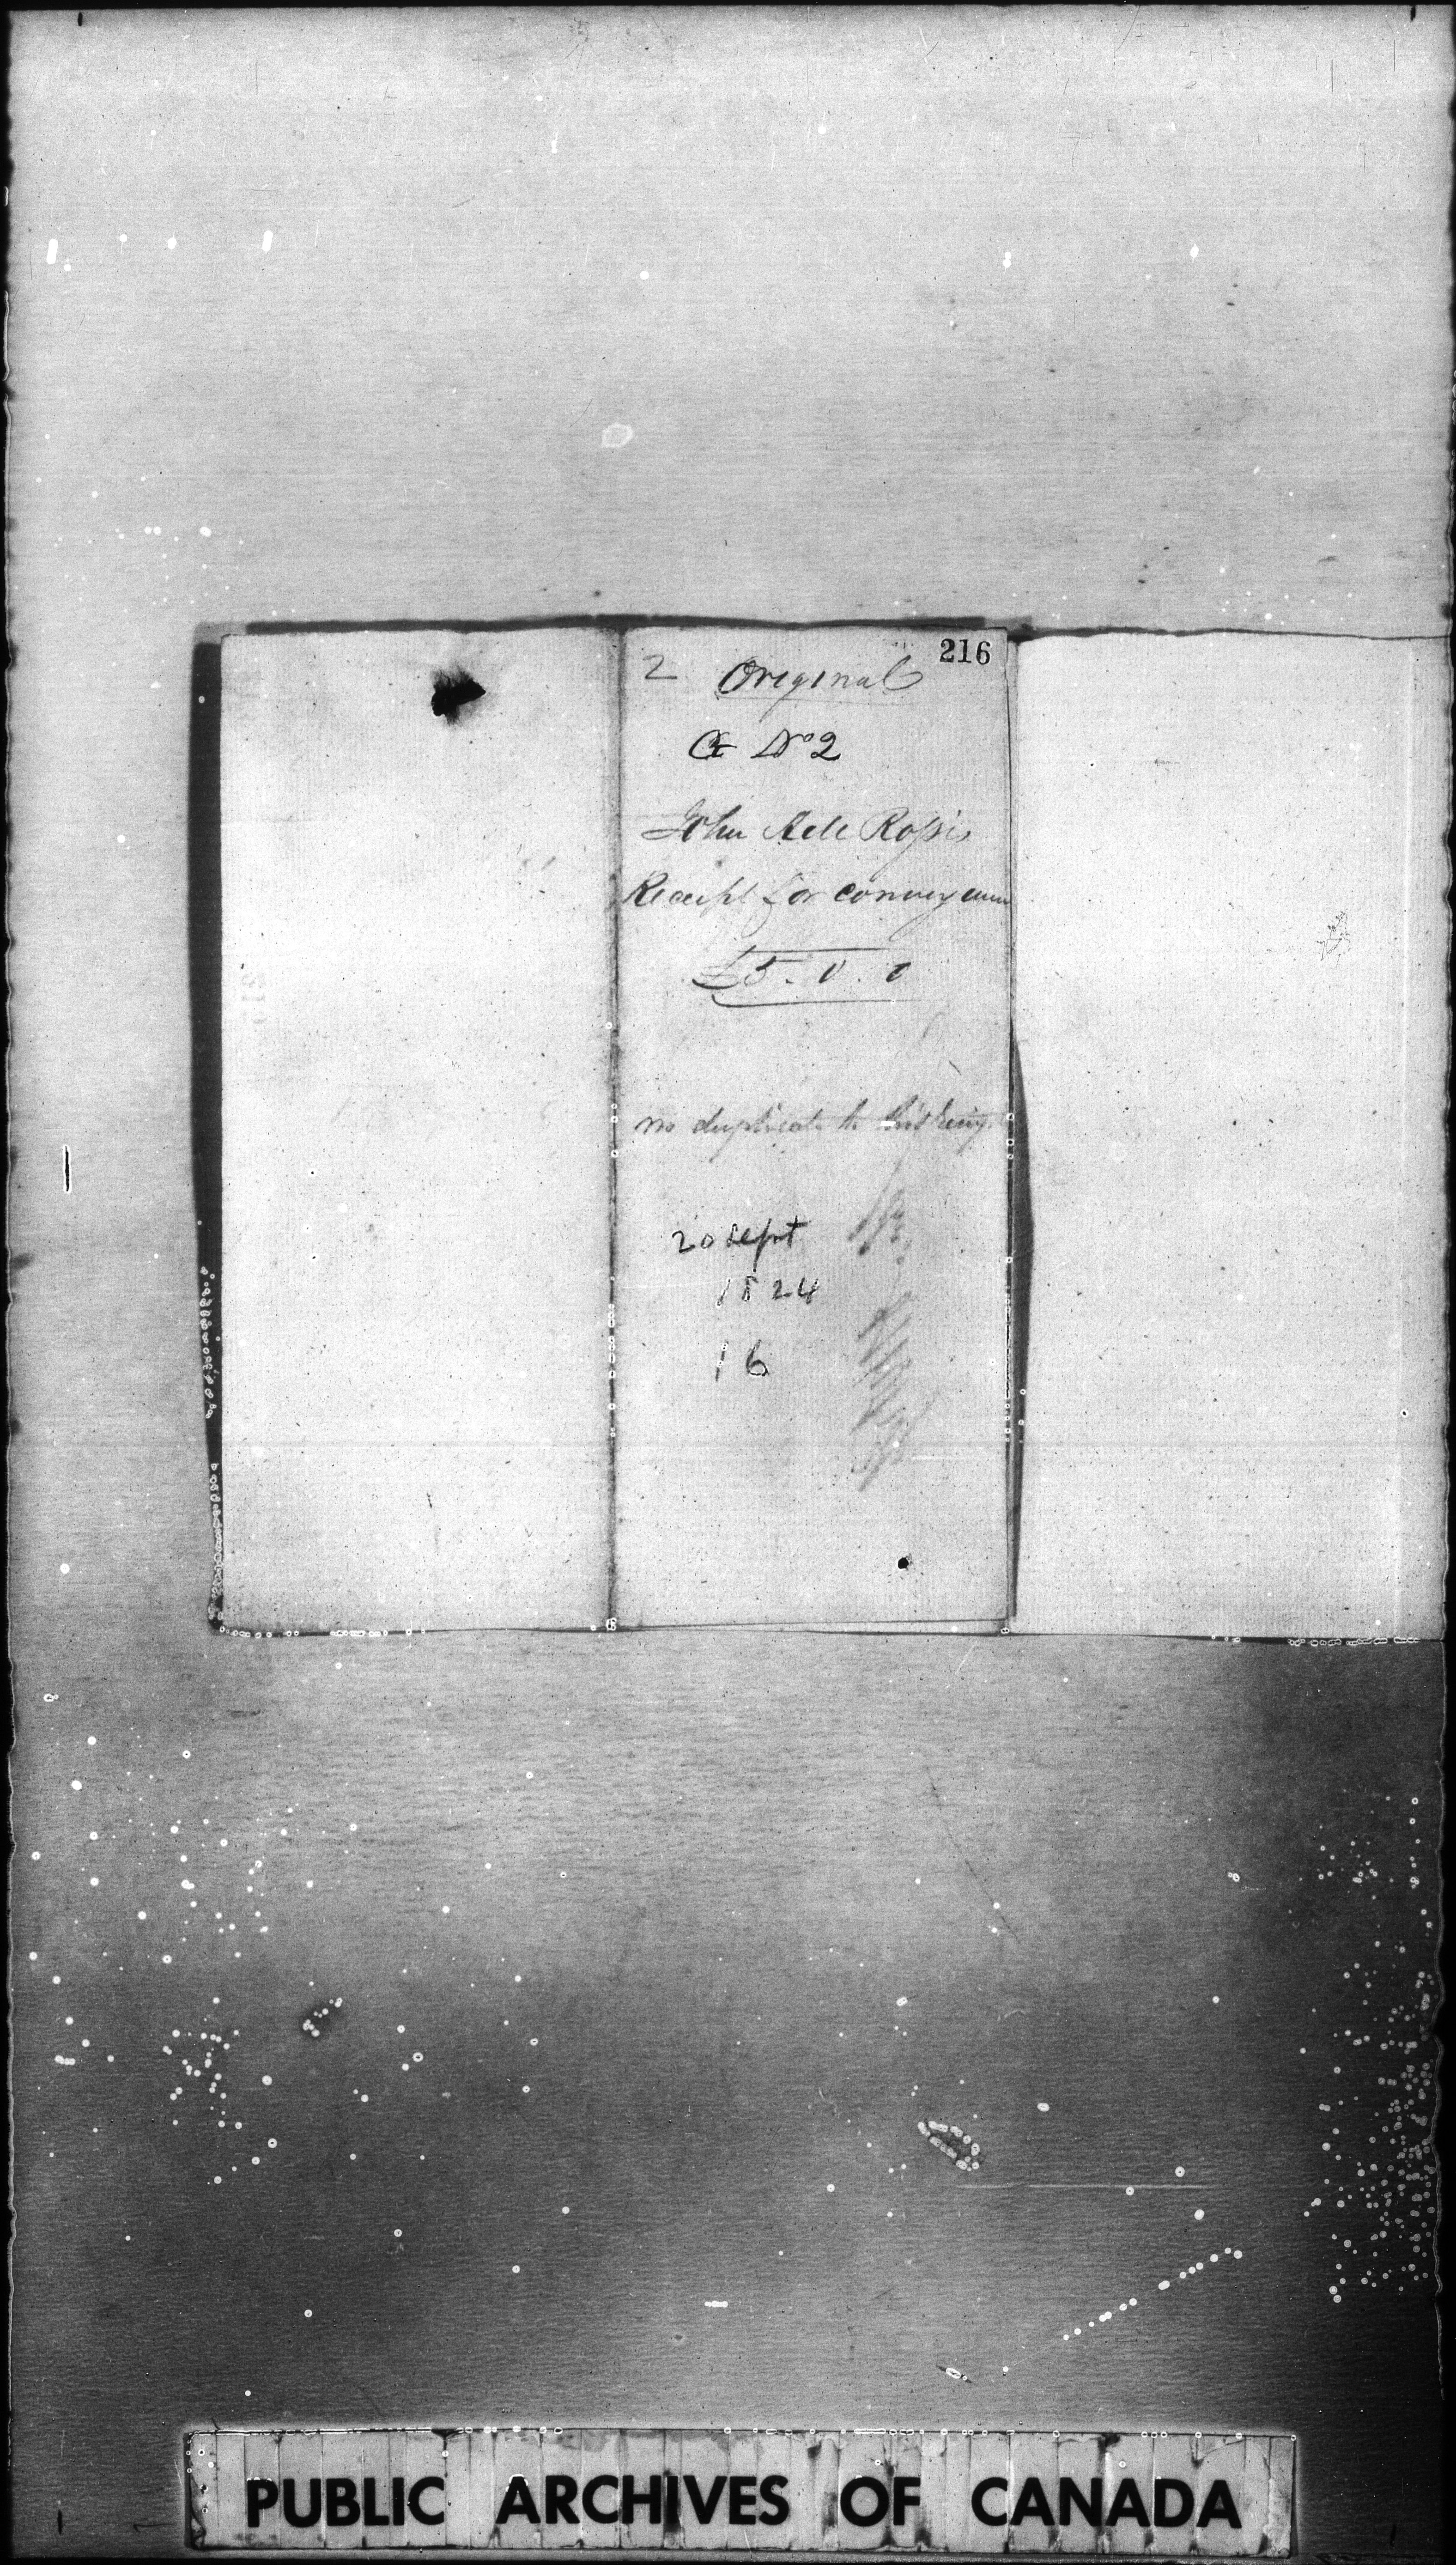 216
2 Original
No 2
John Roſs
Receipt for conveyance
£5. 0. 0
no duplicate to this
20 Sept
1824
16
PUBLIC ARCHIVES OF CANADA